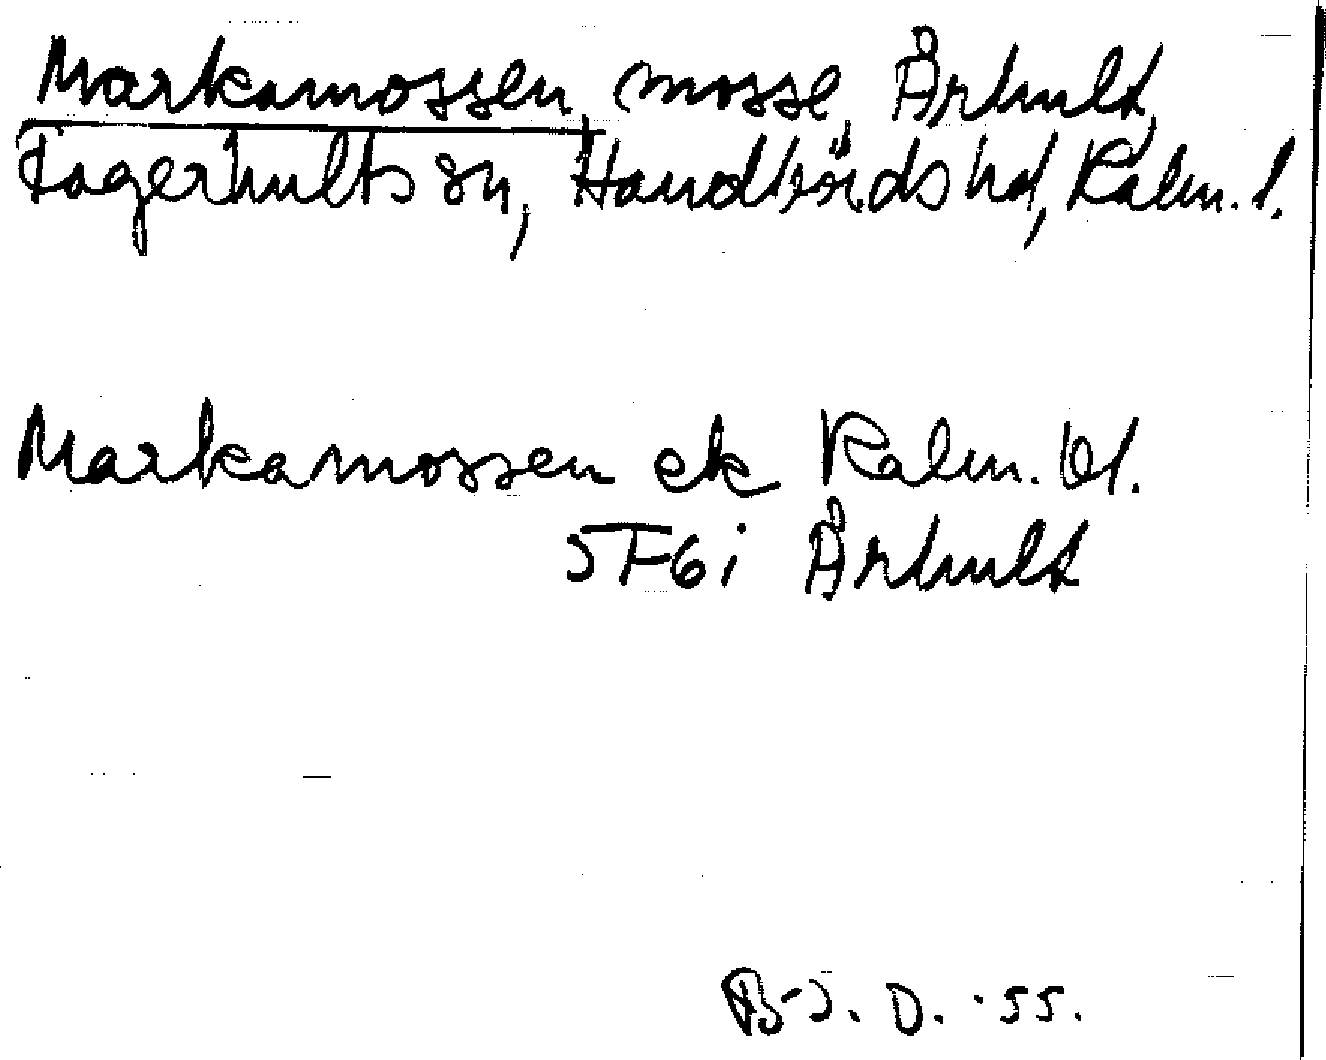 Markamossen, mosse, Århult,
Fagerhults sn, Handbörds hd, Kalm. l.
Markamossen ek Kalm. bl.
5F6i Århult
B-J. D. -55.